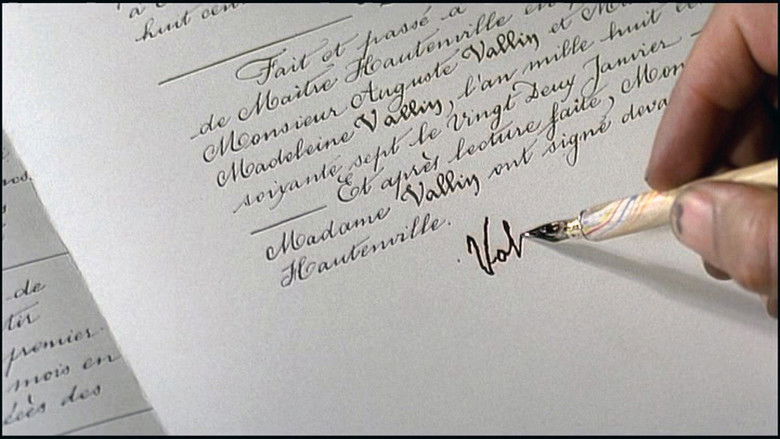 à C
huit cen
Fait et passé à
de Maître Hautenville en
Monsieur Auguste Vallin et M
Madeleine Vallin, l'an mille huit c
soixante sept le vingt Deux Janvier —
Et après lecture faite, Mon
Madame Vallin ont signé deva
Hautenville.
Val
de
tir
premier.
mois en
des